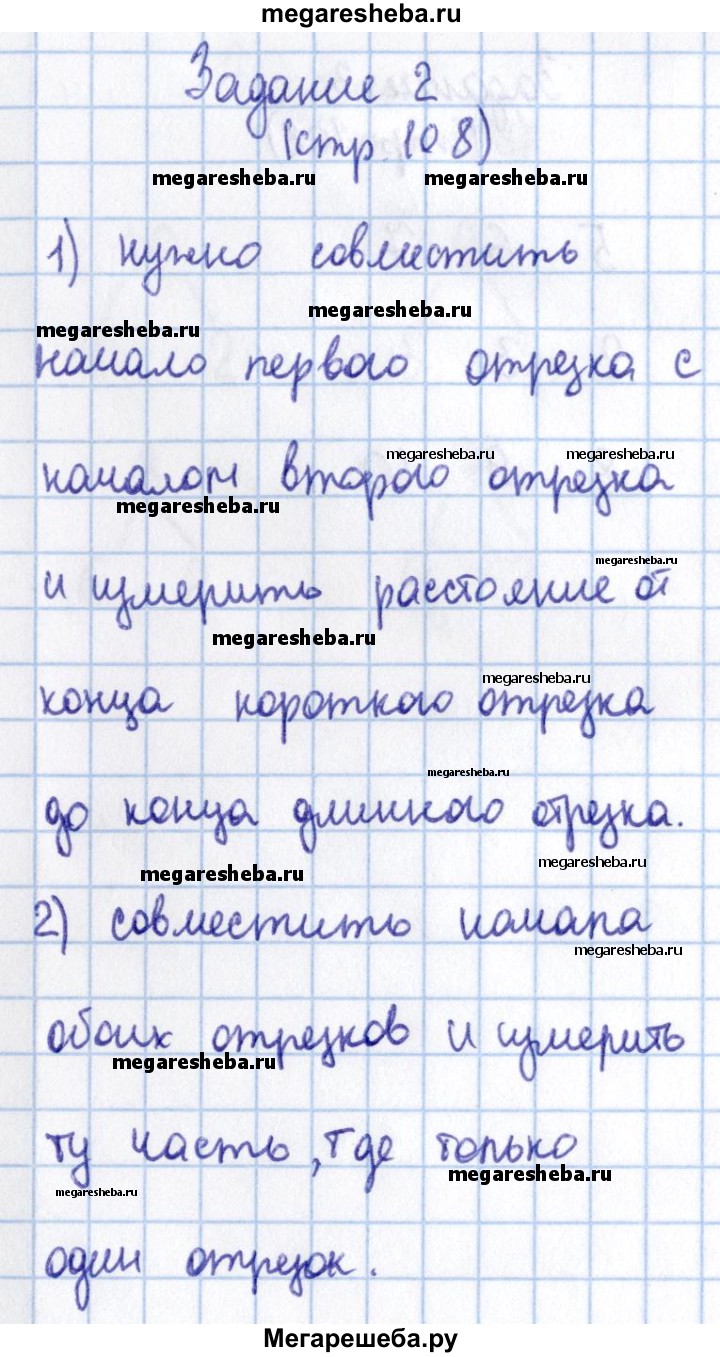 megaresheba.ru
Задание 2
(стр. 108)
megaresheba.ru megaresheba.ru
1) нужно совместить
megaresheba.ru
megaresheba.ru
начало первого отрезка с
megaresheba.ru megaresheba.ru
началом второго отрезка
megaresheba.ru
megaresheba.ru
и измерить расстояние от
megaresheba.ru
megaresheba.ru
конца короткого отрезка
megaresheba.ru
до конца длинного отрезка.
megaresheba.ru
megaresheba.ru
2) совместить начала
megaresheba.ru
обоих отрезков и измерить
megaresheba.ru
ту часть, где только
megaresheba.ru
megaresheba.ru
один отрезок.
Мегарешеба.ру